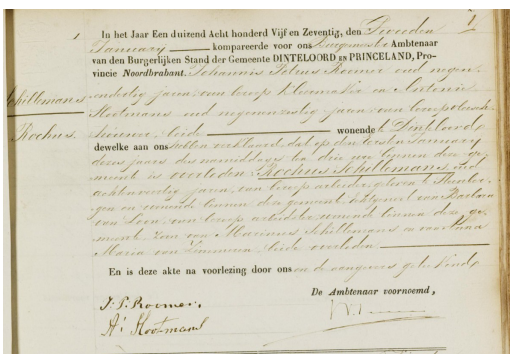 1
1
In het Jaar Een duizend Acht honderd Vijf en Zeventig, den Tweeden
January kompareerde voor ons Burgemeester Ambtenaar
van den Burgerlijken Stand der Gemeente DINTELOORD EN PRINCELAND, Pro-
vincie Noordbrabant. Johannis Petrus Roomer oud negen
jaren, van beroep kleermaker en Antonie
Schillemans
Hootmans oud negenenzestig jaren van beroep
beide wonende te Dinteloord
Rochus
dewelke aan ons hebben verklaard, dat op den eersten January
dezes jaars des namiddags ten drie ure binnen deze ge-
meente is overleden Rochus Schillemans oud
achtenveertig jaren, van beroep arbeider, geboren te
gen en wonende binnen deze gemeente echtgenoot van Barbara
van Loon, van beroep arbeidster wonende binnen deze ge-
meente, zoon van Marinus Schillemans en van Anna
Maria van beide overleden
En is deze akte na voorlezing door ons en de aangevers geteekend
De Ambtenaar voornoemd,
J. P. Roomer.
A: Hootmans